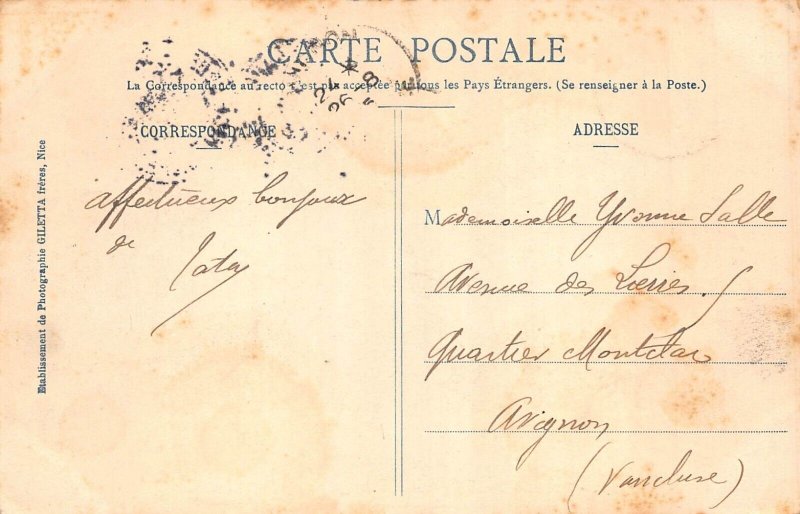 CARTE POSTALE
La Correspondance au recto n'est pas acceptée par tous les Pays Étrangers. (Se renseigner à la Poste.)
CORRESPONDANCE
affectueux bonjour
de
Tata
ADRESSE
Mademoiselle Yvonne Salle
Avenue des Lierres
Quartier Montclar
Avignon
(Vaucluse)
Etablissement de Photographie GILETTA frères, Nice